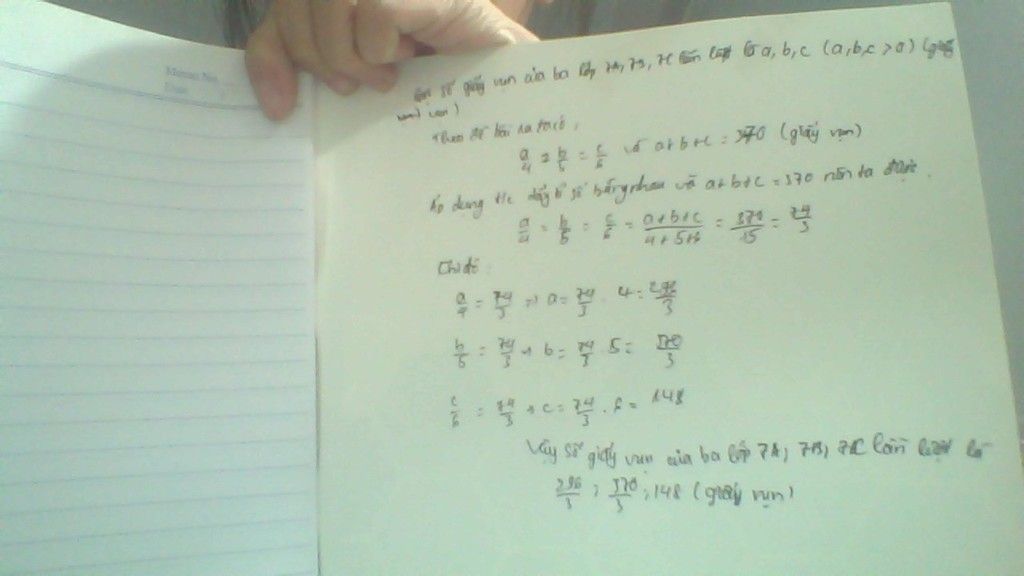 Memo No.
Date
Gọi số giấy vụn của ba lớp 7A, 7B, 7C lần lượt là a, b, c (a,b,c > 0) (giấy
vụn)
Theo đề bài ra ta có:
a/4 = b/5 = c/6 và a+b+c = 370 (giấy vụn)
Áp dụng t/c dãy tỉ số bằng nhau và a+b+c = 370 nên ta được.
a/4 = b/5 = c/6 = a+b+c/4+5+6 = 370/15 = 74/3
Khi đó:
a/4 = 74/3 → a = 74/3 . 4 = 296/3
b/5 = 74/3 → b = 74/3 . 5 = 370/3
c/6 = 74/3 → c = 74/3 . 6 = 148
Vậy số giấy vụn của ba lớp 7A, 7B, 7C lần lượt là
296/3 ; 370/3 ; 148 (giấy vụn)